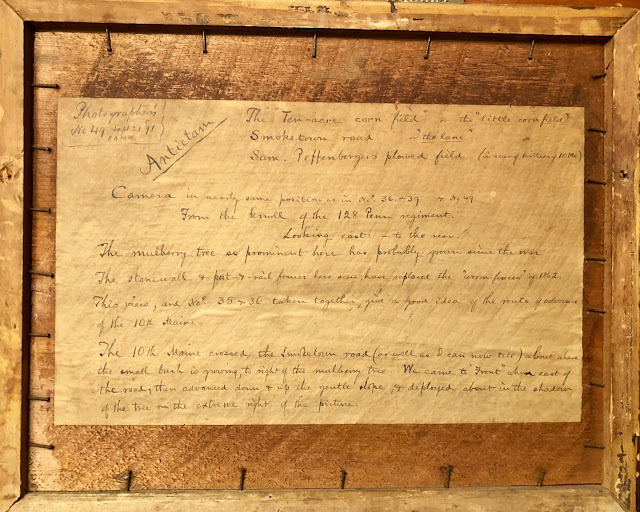 Photographer's
No 49 Sept 21 '91
Antietam
The "Ten-acre corn field" or the "little cornfield"
Smoketown road or "the lane"
Sam. Poffenbergers plowed field (in rear of 10 Me)
Camera in nearly same position as in Nos. 36 - 39 & No 49
From the knoll of the 128 Penn regiment.
Looking east - to the rear.
The mulberry tree so prominent here has probably grown since the war
The stonewall & post-&-rail fences here seen, have replaced the "worm fences" of 1862.
This view, and Nos. 35 & 36 taken together, give a good idea of the route of advance
of the 10th Maine.
The 10th Maine crossed the Smoketown road (as well as I can now tell) about where
the small bush is growing, to right of the mulberry tree. We came to "Front" when east of
the road, then advanced down & up the gentle slope, & deployed about in the shadow
of the tree on the extreme right of the picture.